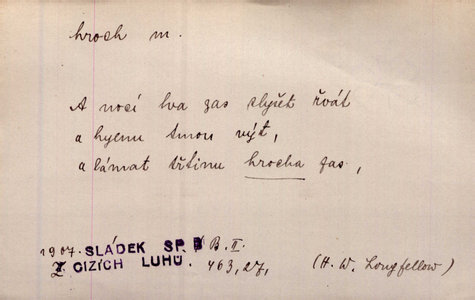 hroch m.
A nocí lva zas slyšet řvát
a hyenu tmou výt,
a lámat třtinu hrocha zas,
1907. SLÁDEK SP. B. II.
Z CIZÍCH LUHŮ. 463, 27,
(H. W. Longfellow)